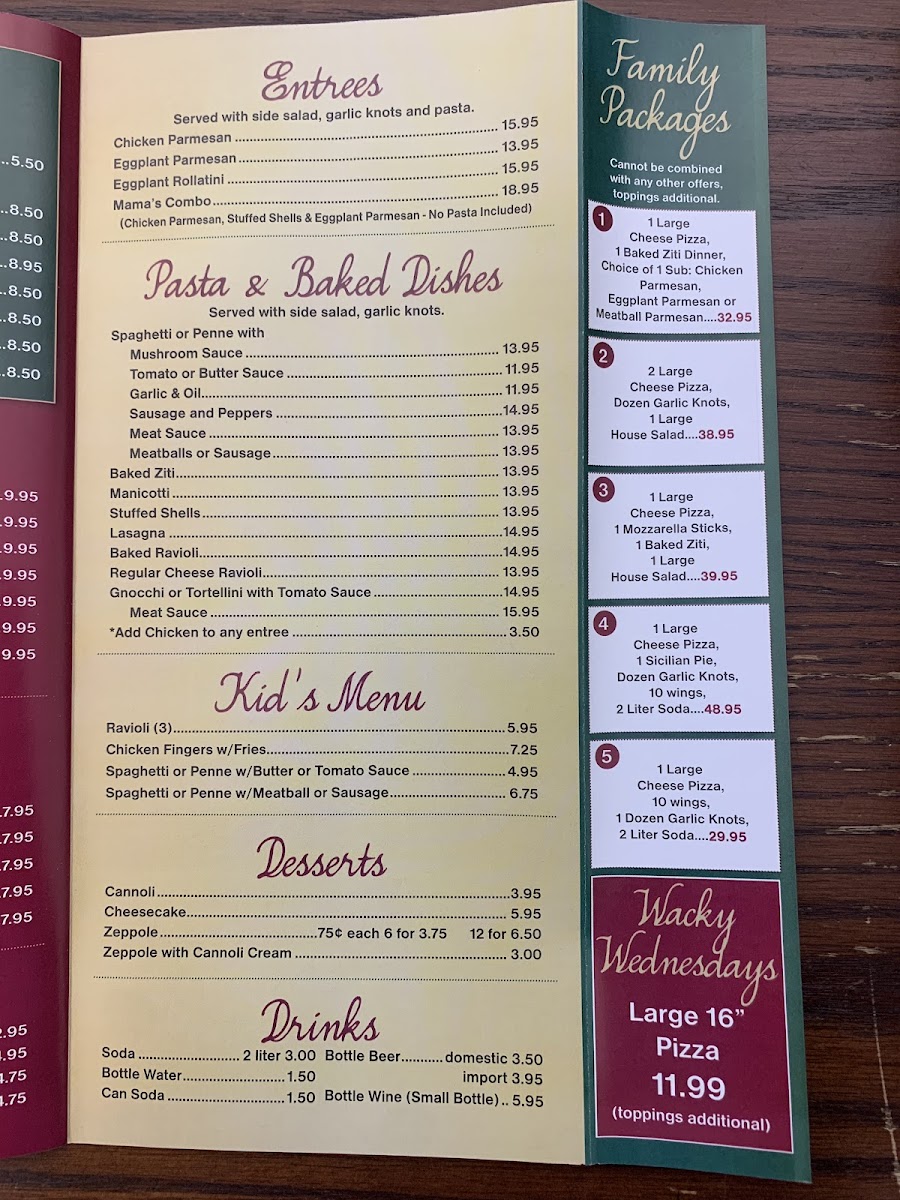 ..5.50
..8.50
..8.50
..8.95
..8.50
..8.50
..8.50
..8.50
.9.95
.9.95
.9.95
.9.95
.9.95
.9.95
9.95
7.95
7.95
7.95
7.95
7.95
2.95
.95
4.75
4.75
Entrees
Served with side salad, garlic knots and pasta.
Chicken Parmesan ........ 15.95
Eggplant Parmesan ........ 13.95
Eggplant Rollatini ........ 15.95
Mama's Combo ........ 18.95
(Chicken Parmesan, Stuffed Shells & Eggplant Parmesan - No Pasta Included)
Pasta & Baked Dishes
Served with side salad, garlic knots.
Spaghetti or Penne with
Mushroom Sauce ........ 13.95
Tomato or Butter Sauce ........ 11.95
Garlic & Oil ........ 11.95
Sausage and Peppers ........ 14.95
Meat Sauce ........ 13.95
Meatballs or Sausage ........ 13.95
Baked Ziti ........ 13.95
Manicotti ........ 13.95
Stuffed Shells ........ 13.95
Lasagna ........ 14.95
Baked Ravioli ........ 14.95
Regular Cheese Ravioli ........ 13.95
Gnocchi or Tortellini with Tomato Sauce ........ 14.95
Meat Sauce ........ 15.95
*Add Chicken to any entree ........ 3.50
Kid's Menu
Ravioli (3) ........ 5.95
Chicken Fingers w/Fries ........ 7.25
Spaghetti or Penne w/Butter or Tomato Sauce ........ 4.95
Spaghetti or Penne w/Meatball or Sausage ........ 6.75
Desserts
Cannoli ........ 3.95
Cheesecake ........ 5.95
Zeppole ........ 75¢ each 6 for 3.75 12 for 6.50
Zeppole with Cannoli Cream ........ 3.00
Drinks
Soda ........ 2 liter 3.00 Bottle Beer ........ domestic 3.50
Bottle Water ........ 1.50 import 3.95
Can Soda ........ 1.50 Bottle Wine (Small Bottle) .. 5.95
Family
Packages
Cannot be combined
with any other offers,
toppings additional.
1
1 Large
Cheese Pizza,
1 Baked Ziti Dinner,
Choice of 1 Sub: Chicken
Parmesan,
Eggplant Parmesan or
Meatball Parmesan....32.95
2
2 Large
Cheese Pizza,
Dozen Garlic Knots,
1 Large
House Salad....38.95
3
1 Large
Cheese Pizza,
1 Mozzarella Sticks,
1 Baked Ziti,
1 Large
House Salad....39.95
4
1 Large
Cheese Pizza,
1 Sicilian Pie,
Dozen Garlic Knots,
10 wings,
2 Liter Soda....48.95
5
1 Large
Cheese Pizza,
10 wings,
1 Dozen Garlic Knots,
2 Liter Soda....29.95
Wacky
Wednesdays
Large 16”
Pizza
11.99
(toppings additional)